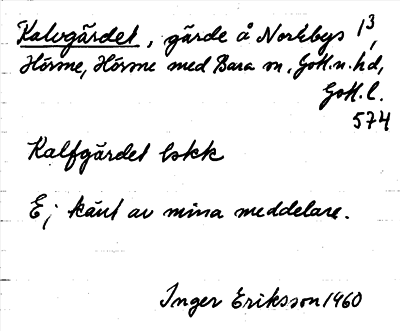 Kalvgärdet, gärde å Norrbys 1³,
Hörsne, Hörsne med Bara sn, Gotl. n. hd,
Gotl. l.
574
Kalfgärdet bskk
Ej känt av mina meddelare.
Inger Eriksson 1960